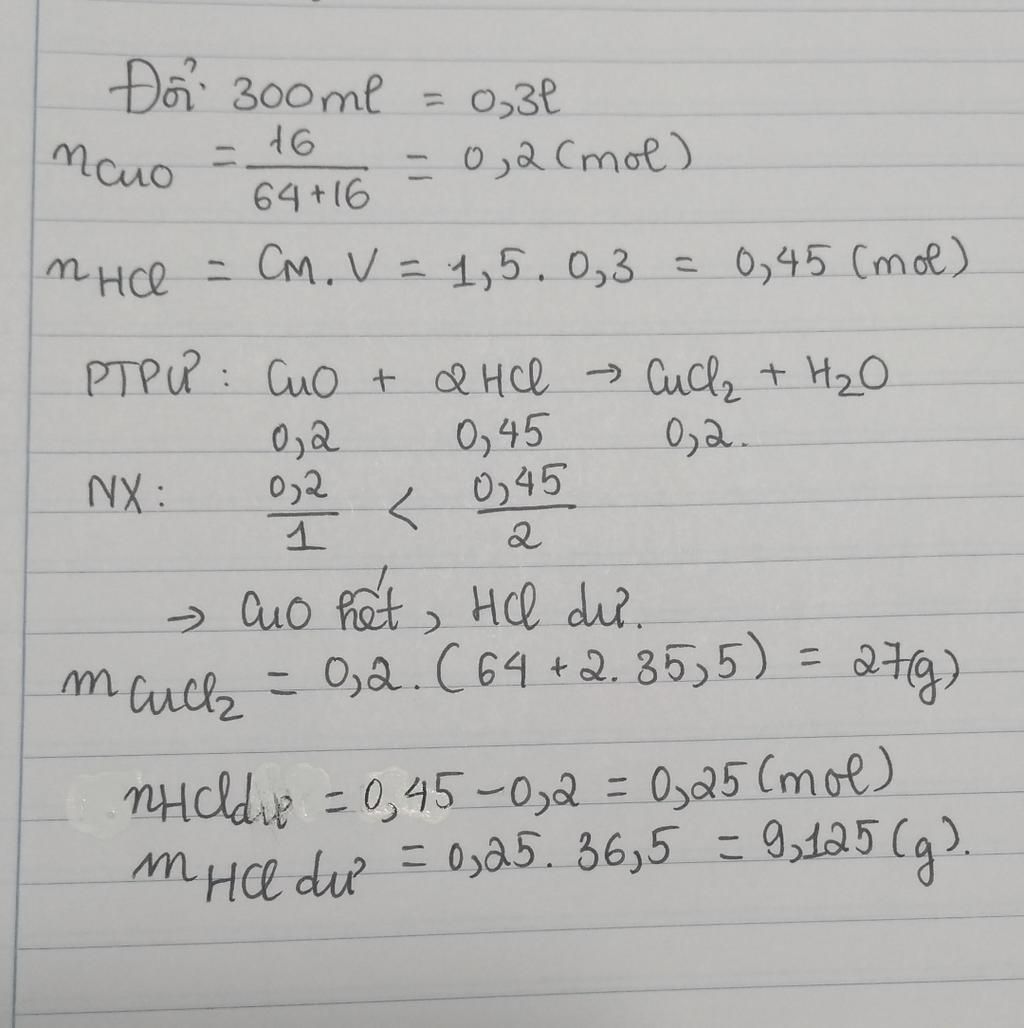 Đổi: 300ml = 0,3l
nCuO = 16/(64+16) = 0,2 (mol)
nHCl = CM.V = 1,5 . 0,3 = 0,45 (mol)
PTPƯ: CuO + 2HCl → CuCl₂ + H₂O
0,2 0,45 0,2.
NX: 0,2/1 < 0,45/2
→ CuO hết, HCl dư.
mCuCl₂ = 0,2.(64 + 2. 35,5) = 27(g)
nHCl dư = 0,45 - 0,2 = 0,25 (mol)
mHCl dư = 0,25. 36,5 = 9,125 (g).